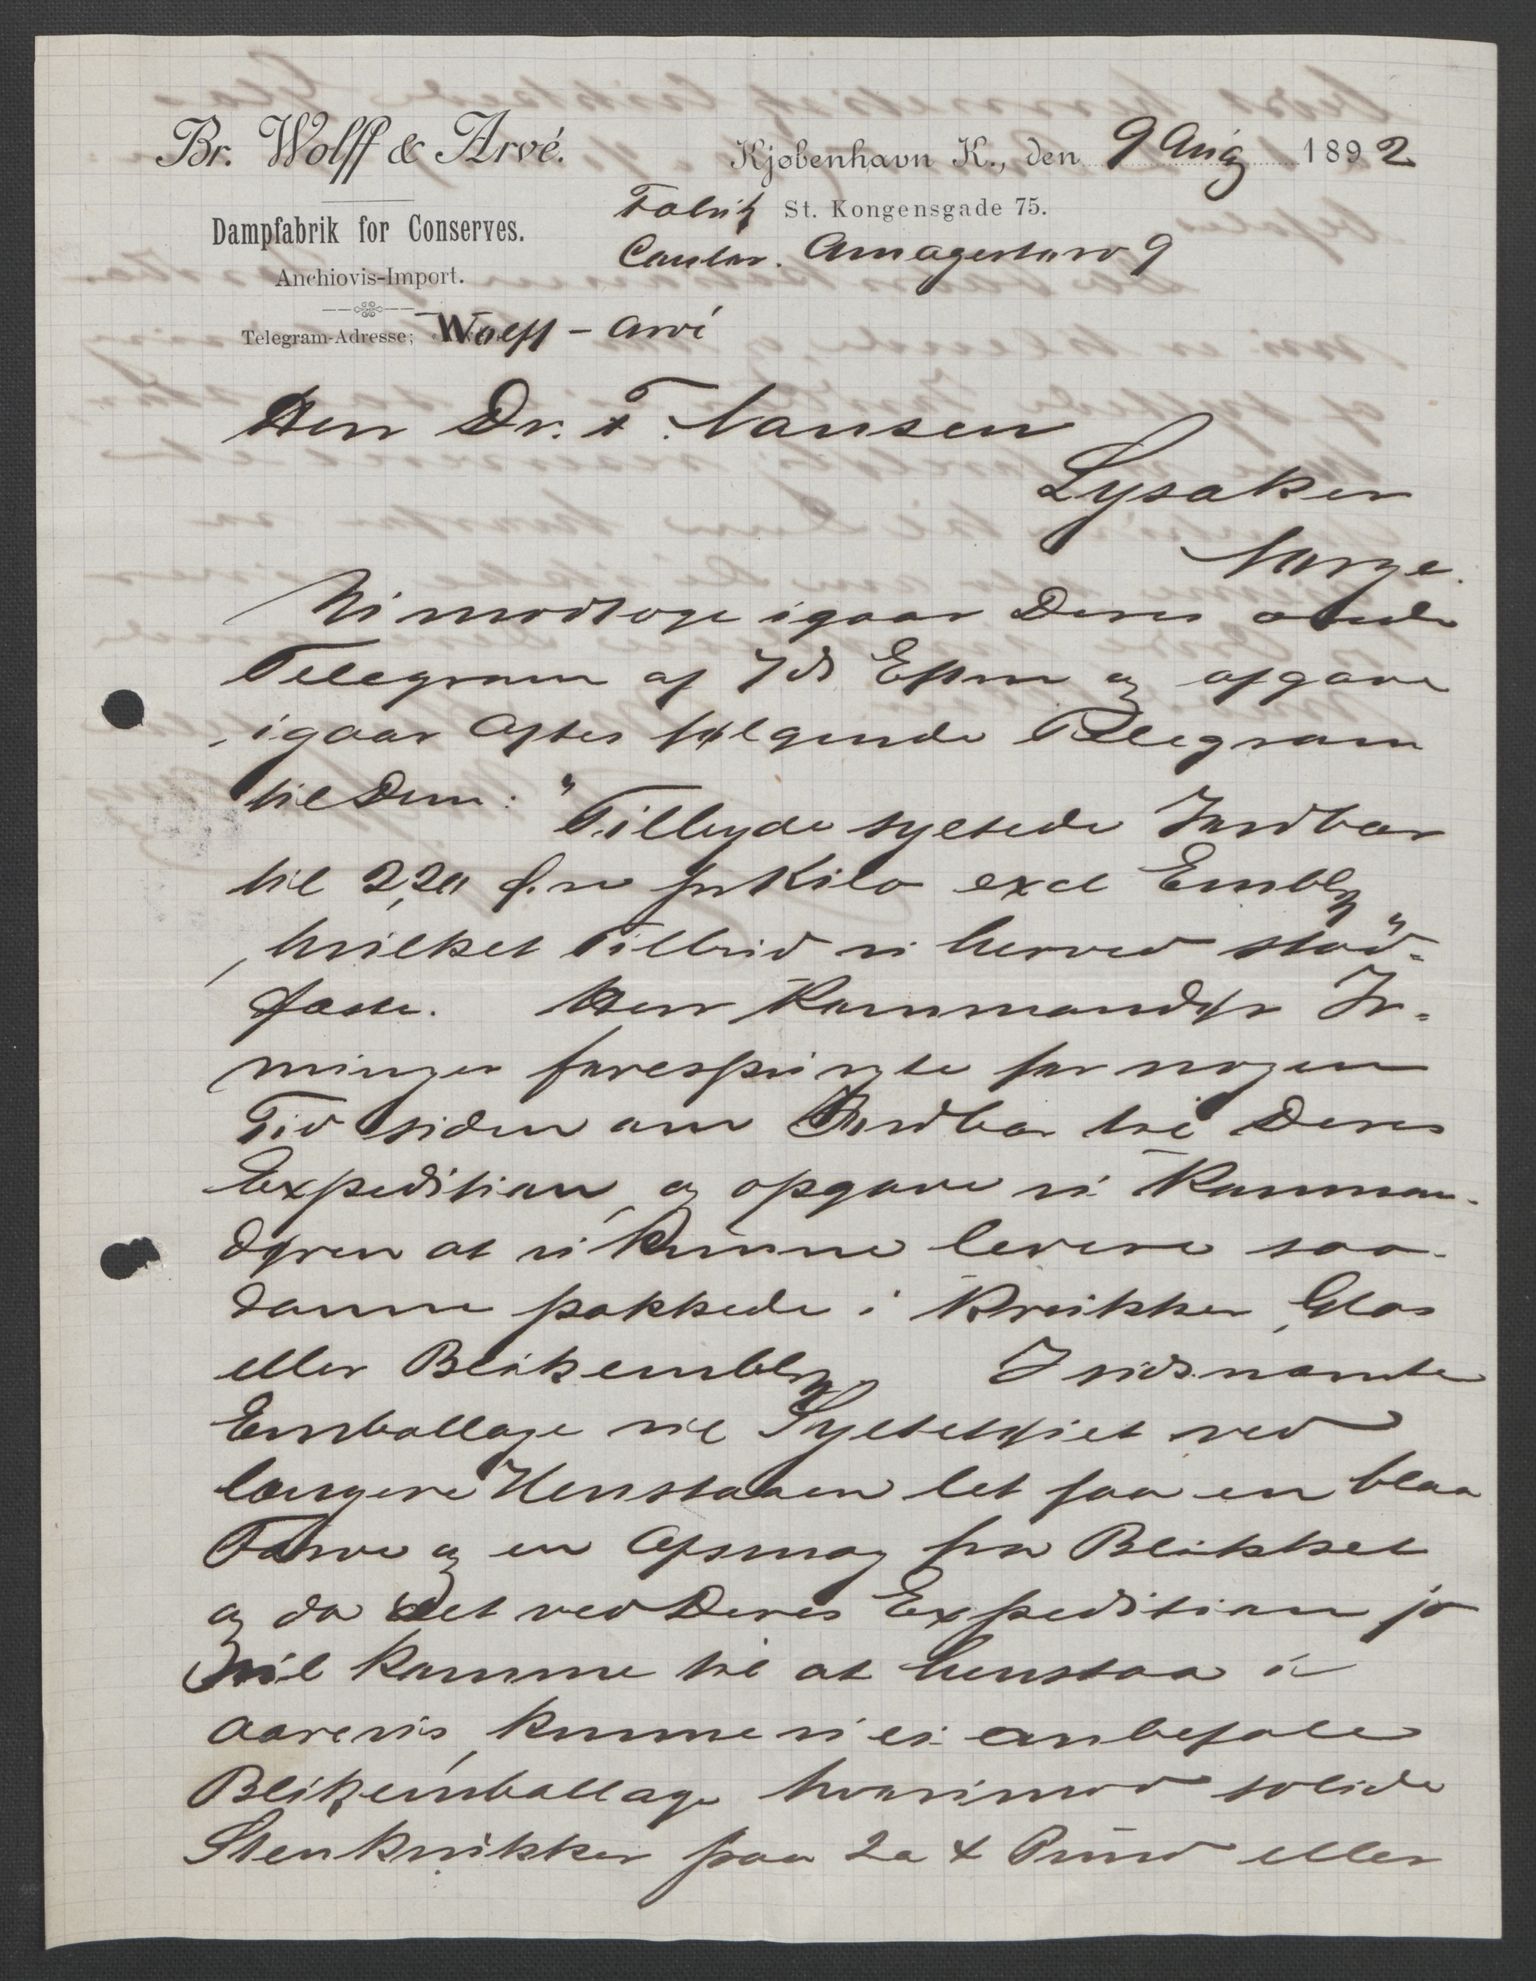 Br. Wolff & Arvé.
Kjøbenhavn K., den 9 Aug 1892
Dampfabrik for Conserves.
Fabrik St. Kongensgade 75.
Contor. Amagertorv 9
Anchiovis-Import.
Telegram-Adresse: Wolff-Arvé
Herr Dr. F. Nansen
Lysaker
Norge.
Vi modtoge igaar Deres ærede
Telegram af 7 ds Eftm og afgave
igaar Aftes følgende Telegram
til Dem: "Tilbyde syltede Jordbær
til 2,20 Øre pr Kilo excl Emblg"
, hvilket Tilbud vi herved stad-
fæste. Herr Kommandør Ir-
minger forespurgte for nogen
Tid siden om Jordbær til Deres
Expedition, og opgave vi Komman-
døren at vi kunne levere saa-
danne pakkede i Krukker, Glas
eller Blikemblg. I sidsnævnte
Emballage vil Syltetøiet ved
længere Henstaaen let faa en blaa
Farve og en Afsmag fra Blikket
og da det ved Deres Expedition jo
vil komme til at henstaa i
aarevis, kunne vi ei anbefale
Blikemballage hvorimod solide
Stenkrukker paa 2 a 4 Pund eller